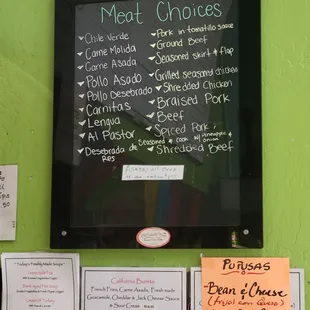 Meat Choices
Chile Verde
Carne Molida
Carne Asada
Pollo Asado
Pollo Desebrado
Carnitas
Lengua
Al Pastor
Desebrada de Res
Pork in tomatillo sauce
Ground Beef
Seasoned skirt & flap
Grilled seasoned chicken
Shredded Chicken
Braised Pork
Beef
Spiced Pork
Seasoned & cook w/ pineapple & onion
Shredded Beef
California Burrito
French Fries, Carne Asada, Fresh made
Guacamole, Cheddar & Jack Cheese Sauce
& Sour Cream
PUPUSAS
Bean & Cheese
(frijol con Queso)